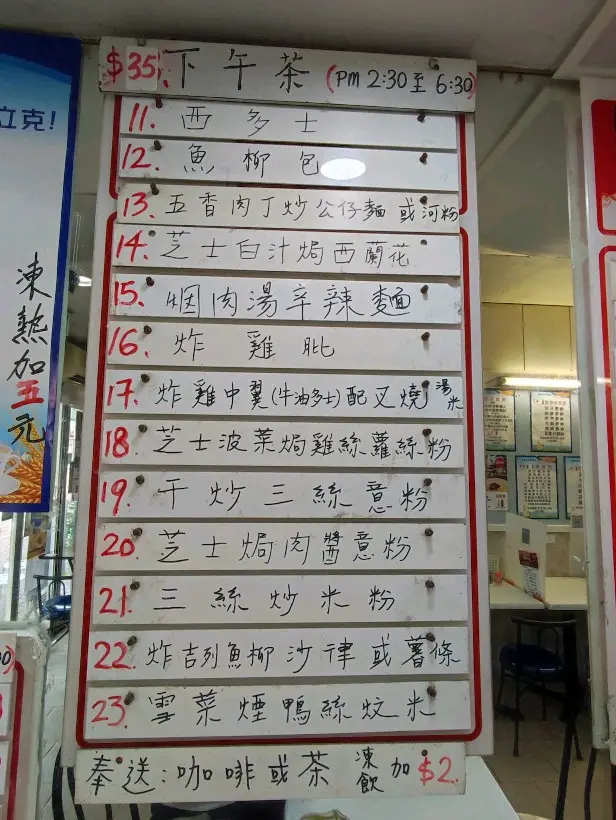 $35. 下午茶 (PM 2:30 至 6:30)
11. 西多士
12. 魚柳包
13. 五香肉丁炒公仔麵或河粉
14. 芝士白汁焗西蘭花
15. 烟肉湯辛辣麵
16. 炸雞肶
17. 炸雞中翼(牛油多士)配叉燒湯米
18. 芝士波菜焗雞絲蘿絲粉
19. 干炒三絲意粉
20. 芝士焗肉醬意粉
21. 三絲炒米粉
22. 炸吉列魚柳沙律或薯條
23. 雪菜煙鴨絲炆米
奉送:咖啡或茶 凍飲加$2.
立克!
凍熱加五元